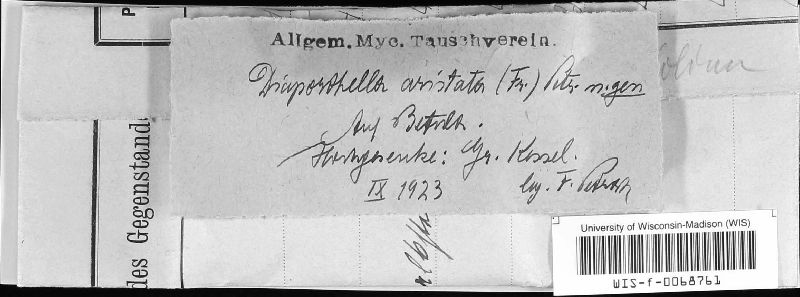 Allgem. Myc. Tauschverein.
Diaporthella aristata (Fr.) Petr. n. gen
Auf Betula.
Hochgesenke: Gr. Kessel.
IX 1923 leg. F. Petrak
des Gegenstand
University of Wisconsin-Madison (WIS)
WIS-f-0068761